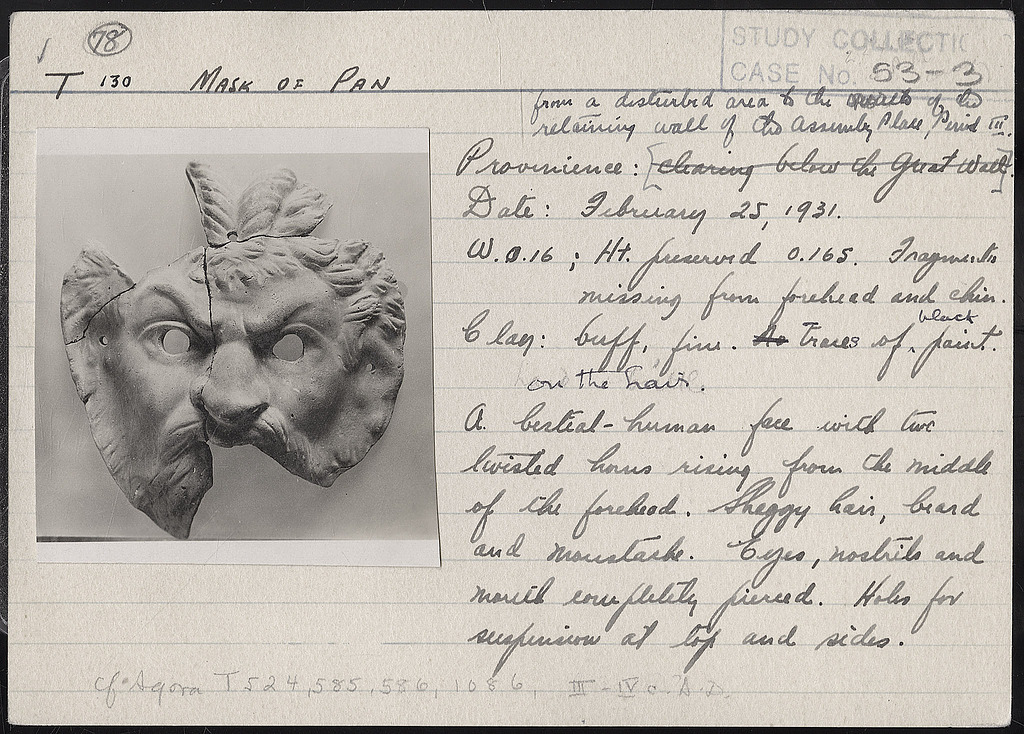 78
T 130 MASK OF PAN
STUDY COLLECTIO
CASE No. S3-3
from a disturbed area to the of the
retaining wall of the Assembly Place, Period III.
Provenience: [clearing below the Great Wall].
Date: February 25, 1931.
W. 0.16; Ht. preserved 0.165. Fragments
missing from forehead and chin.
Clay: buff, fine. No Traces of black paint.
on the hair.
A bestial-human face with two
twisted horns rising from the middle
of the forehead. Shaggy hair, beard
and moustache. Eyes, nostrils and
mouth completely pierced. Holes for
suspension at top and sides.
cf. Agora T 524, 585, 586, 1086, III-IV c. A.D.